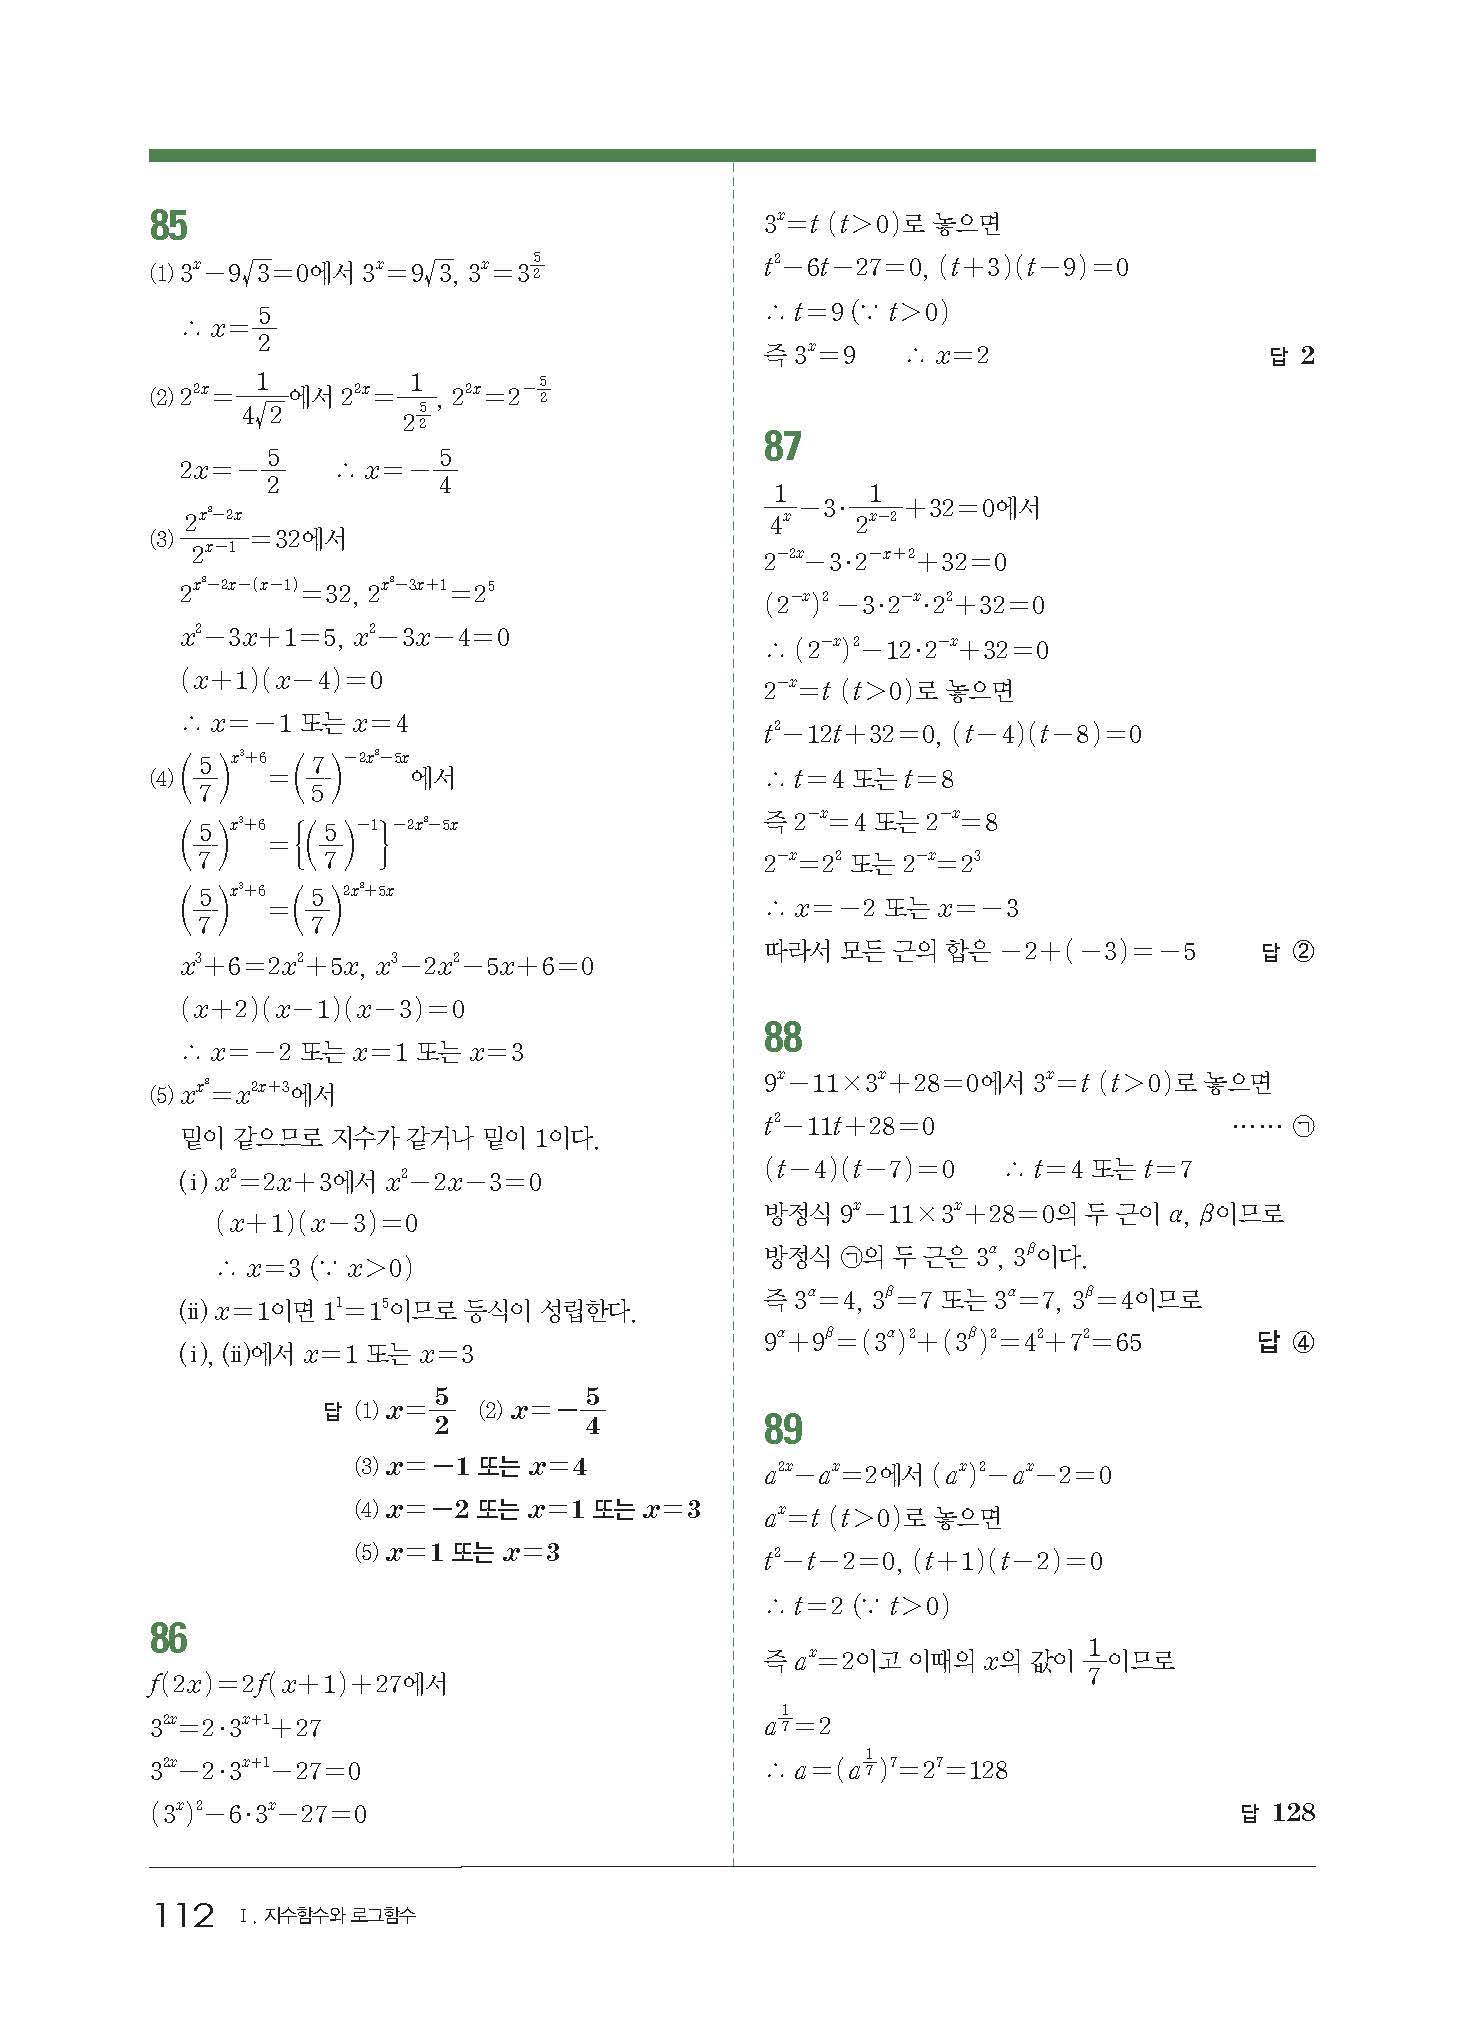 85
⑴ 3^x-9√3=0에서 3^x=9√3, 3^x=3^(5/2)
∴ x=5/2
⑵ 2^(2x)=1/(4√2)에서 2^(2x)=1/2^(5/2), 2^(2x)=2^(-5/2)
2x=-5/2 ∴ x=-5/4
⑶ 2^(x²-2x)/2^(x-1)=32에서
2^(x²-2x-(x-1))=32, 2^(x²-3x+1)=2^5
x²-3x+1=5, x²-3x-4=0
(x+1)(x-4)=0
∴ x=-1 또는 x=4
⑷ (5/7)^(x³+6)=(7/5)^(-2x²-5x)에서
(5/7)^(x³+6)={(5/7)^(-1)}^(-2x²-5x)
(5/7)^(x³+6)=(5/7)^(2x²+5x)
x³+6=2x²+5x, x³-2x²-5x+6=0
(x+2)(x-1)(x-3)=0
∴ x=-2 또는 x=1 또는 x=3
⑸ x^(x²)=x^(2x+3)에서
밑이 같으므로 지수가 같거나 밑이 1이다.
(ⅰ) x²=2x+3에서 x²-2x-3=0
(x+1)(x-3)=0
∴ x=3 (∵ x>0)
(ⅱ) x=1이면 1^1=1^5이므로 등식이 성립한다.
(ⅰ), (ⅱ)에서 x=1 또는 x=3
답 ⑴ x=5/2 ⑵ x=-5/4
⑶ x=-1 또는 x=4
⑷ x=-2 또는 x=1 또는 x=3
⑸ x=1 또는 x=3
86
f(2x)=2f(x+1)+27에서
3^(2x)=2·3^(x+1)+27
3^(2x)-2·3^(x+1)-27=0
(3^x)²-6·3^x-27=0
3^x=t (t>0)로 놓으면
t²-6t-27=0, (t+3)(t-9)=0
∴ t=9 (∵ t>0)
즉 3^x=9 ∴ x=2 답 2
87
1/4^x-3·1/2^(x-2)+32=0에서
2^(-2x)-3·2^(-x+2)+32=0
(2^(-x))²-3·2^(-x)·2²+32=0
∴ (2^(-x))²-12·2^(-x)+32=0
2^(-x)=t (t>0)로 놓으면
t²-12t+32=0, (t-4)(t-8)=0
∴ t=4 또는 t=8
즉 2^(-x)=4 또는 2^(-x)=8
2^(-x)=2² 또는 2^(-x)=2³
∴ x=-2 또는 x=-3
따라서 모든 근의 합은 -2+(-3)=-5 답 ②
88
9^x-11×3^x+28=0에서 3^x=t (t>0)로 놓으면
t²-11t+28=0 …… ㉠
(t-4)(t-7)=0 ∴ t=4 또는 t=7
방정식 9^x-11×3^x+28=0의 두 근이 α, β이므로
방정식 ㉠의 두 근은 3^α, 3^β이다.
즉 3^α=4, 3^β=7 또는 3^α=7, 3^β=4이므로
9^α+9^β=(3^α)²+(3^β)²=4²+7²=65 답 ④
89
a^(2x)-a^x=2에서 (a^x)²-a^x-2=0
a^x=t (t>0)로 놓으면
t²-t-2=0, (t+1)(t-2)=0
∴ t=2 (∵ t>0)
즉 a^x=2이고 이때의 x의 값이 1/7이므로
a^(1/7)=2
∴ a=(a^(1/7))^7=2^7=128
답 128
112 Ⅰ. 지수함수와 로그함수